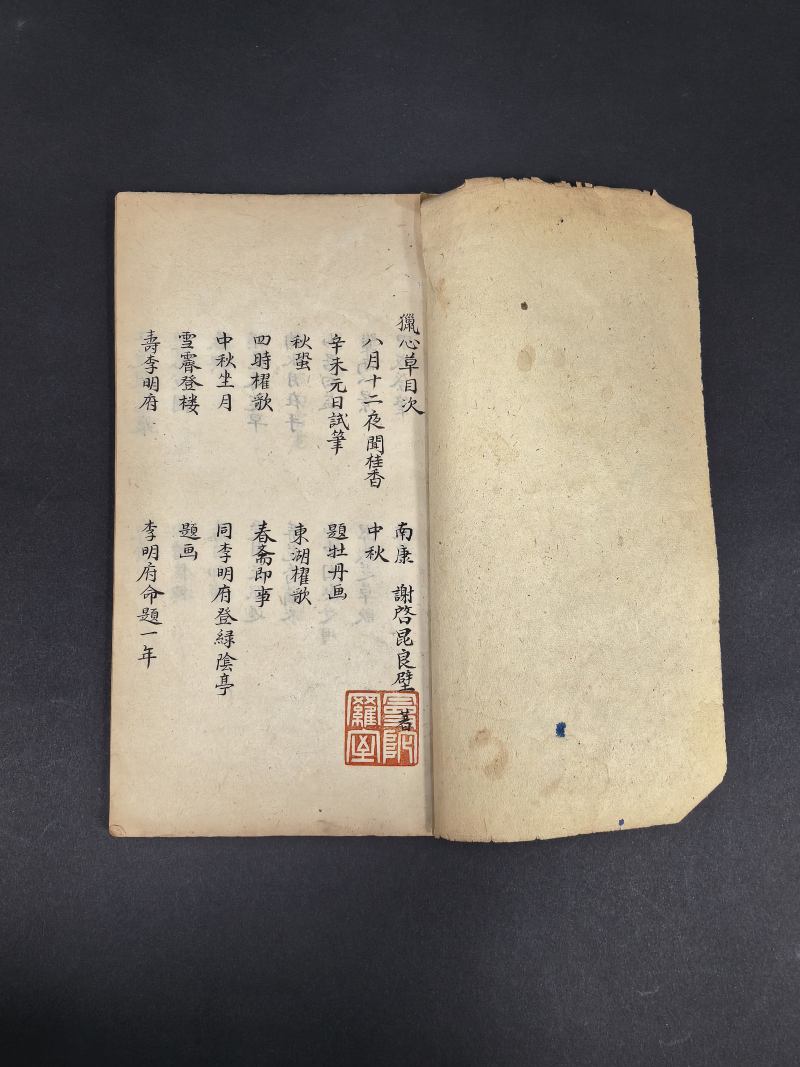 獵心草目次　南康　謝啓昆良壁　著
八月十二夜聞桂香　中秋
辛未元日試筆　題牡丹画
秋蛩　東湖櫂歌
四時櫂歌　春斋即事
中秋坐月　同李明府登緑陰亭
雪霽登楼　題画
壽李明府　李明府命題一年
曼陀羅室